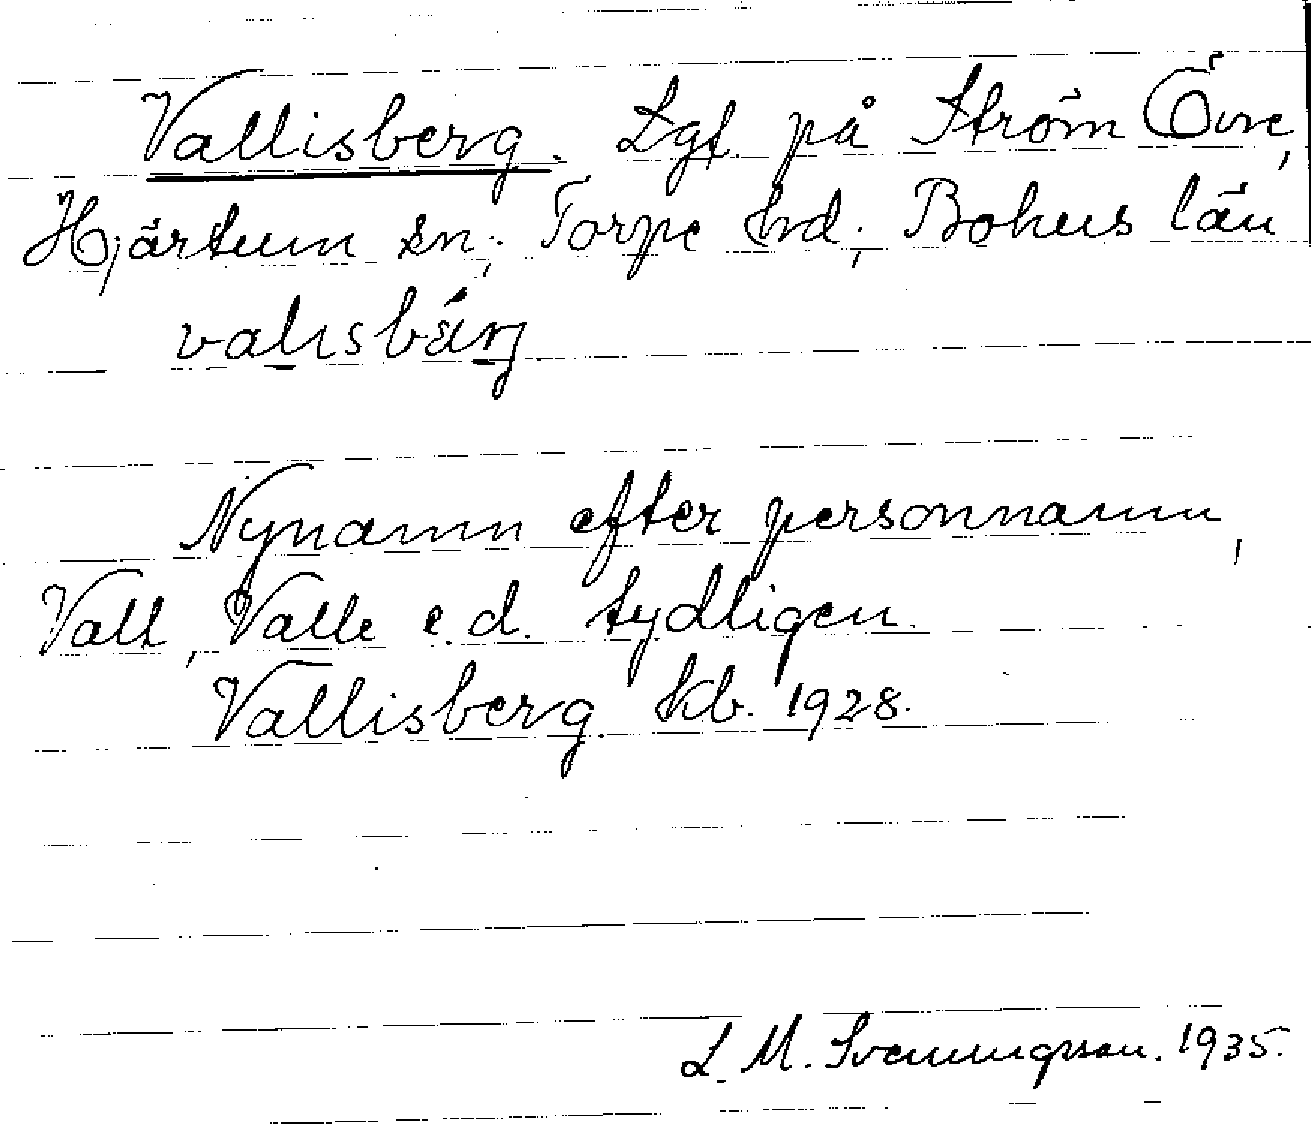 Vallisberg. Lgt. på Ström Övre,
Hjärtum sn; Torpe hd; Bohus län
valısbärg
Nynamn efter personnamn,
Vall, Valle e.d. tydligen.
Vallisberg. kb. 1928.
L. M. Svenungsson. 1935.